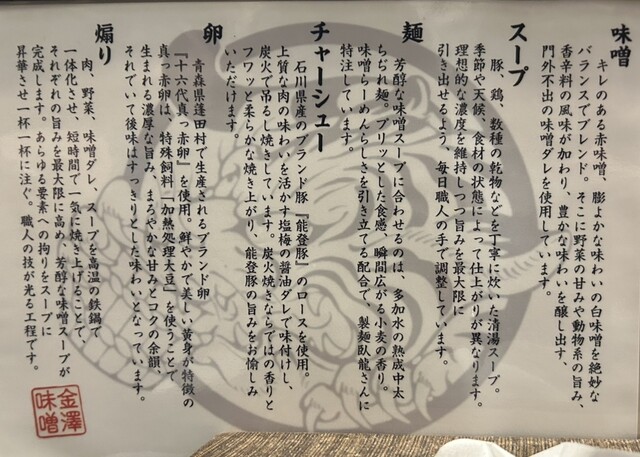 味噌
キレのある赤味噌、膨よかな味わいの白味噌を絶妙な
バランスでブレンド。そこに野菜の甘みや動物系の旨み、
香辛料の風味が加わり、豊かな味わいを醸し出す、
門外不出の味噌ダレを使用しています。
スープ
豚、鶏、数種の乾物などを丁寧に炊いた清湯スープ。
季節や天候、食材の状態によって仕上がりが異なります。
理想的な濃度を維持しつつ旨みを最大限に
引き出せるよう、毎日職人の手で調整しています。
麺
芳醇な味噌スープに合わせるのは、多加水の熟成中太
ちぢれ麺。プリッとした食感、瞬間広がる小麦の香り。
味噌らーめんらしさを引き立てる配合で、製麺臥龍さんに
特注しています。
チャーシュー
石川県産のブランド豚『能登豚』のロースを使用。
上質な肉の味わいを活かす塩梅の醤油ダレで味付けし、
炭火で吊るし焼きしています。炭火焼きならではの香りと
フワッと柔らかな焼き上がり、能登豚の旨みをお愉しみ
いただけます。
卵
青森県蓬田村で生産されるブランド卵
『十六代真っ赤卵』を使用。鮮やかで美しい黄身が特徴の
真っ赤卵は、特殊飼料「加熱処理大豆」を使うことで
生まれる濃厚な旨み、まろやかな甘みとコクの余韻、
それでいて後味はすっきりとした味わいとなっています。
煽り
肉、野菜、味噌ダレ、スープを高温の鉄鍋で
一体化させ、短時間で一気に焼き上げることで、
それぞれの旨みを最大限に高め、芳醇な味噌スープが
完成します。あらゆる要素への拘りをスープに
昇華させ一杯一杯に注ぐ。職人の技が光る工程です。
金澤
味噌